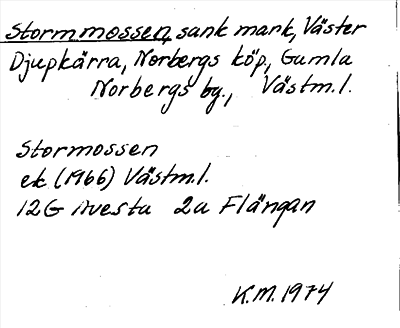 Stormmossen, sank mark, Väster
Djupkärra, Norbergs köp, Gamla
Norbergs by., Västm.l.
Stormossen
ek (1966) Västm.l.
12G Avesta 2a Flängan
K.M. 1974